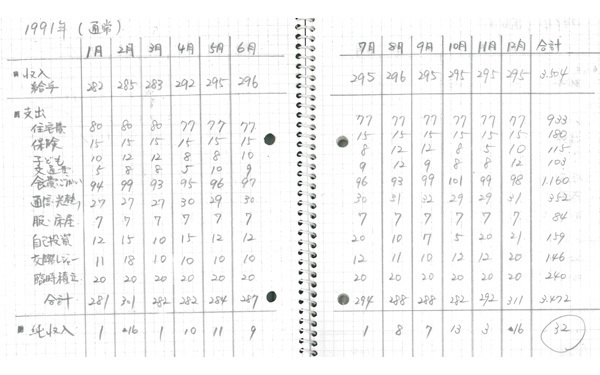 1991年（通常）
1月 2月 3月 4月 5月 6月 7月 8月 9月 10月 11月 12月 合計
■収入
給与 282 285 283 292 295 296 295 296 295 295 295 295 3.504
■支出
住宅費 80 80 80 77 77 77 77 77 77 77 77 77 933
保険 15 15 15 15 15 15 15 15 15 15 15 15 180
子ども 10 12 12 8 8 10 8 12 12 8 5 10 115
交通費 5 8 8 5 10 9 9 12 9 8 8 12 103
食費 94 99 93 95 96 97 96 93 99 101 99 98 1.160
通信・光熱 27 27 27 30 29 30 30 31 32 29 29 31 352
服・床屋 7 7 7 7 7 7 7 7 7 7 7 7 84
自己投資 12 15 10 15 12 12 20 10 7 5 20 21 159
交際レジャー 11 18 10 10 10 10 12 11 10 12 12 20 146
臨時積立 20 20 20 20 20 20 20 20 20 20 20 20 240
合計 281 301 282 282 284 287 294 288 288 282 292 311 3.472
■純収入 1 ▲16 1 10 11 9 1 8 7 13 3 ▲16 32